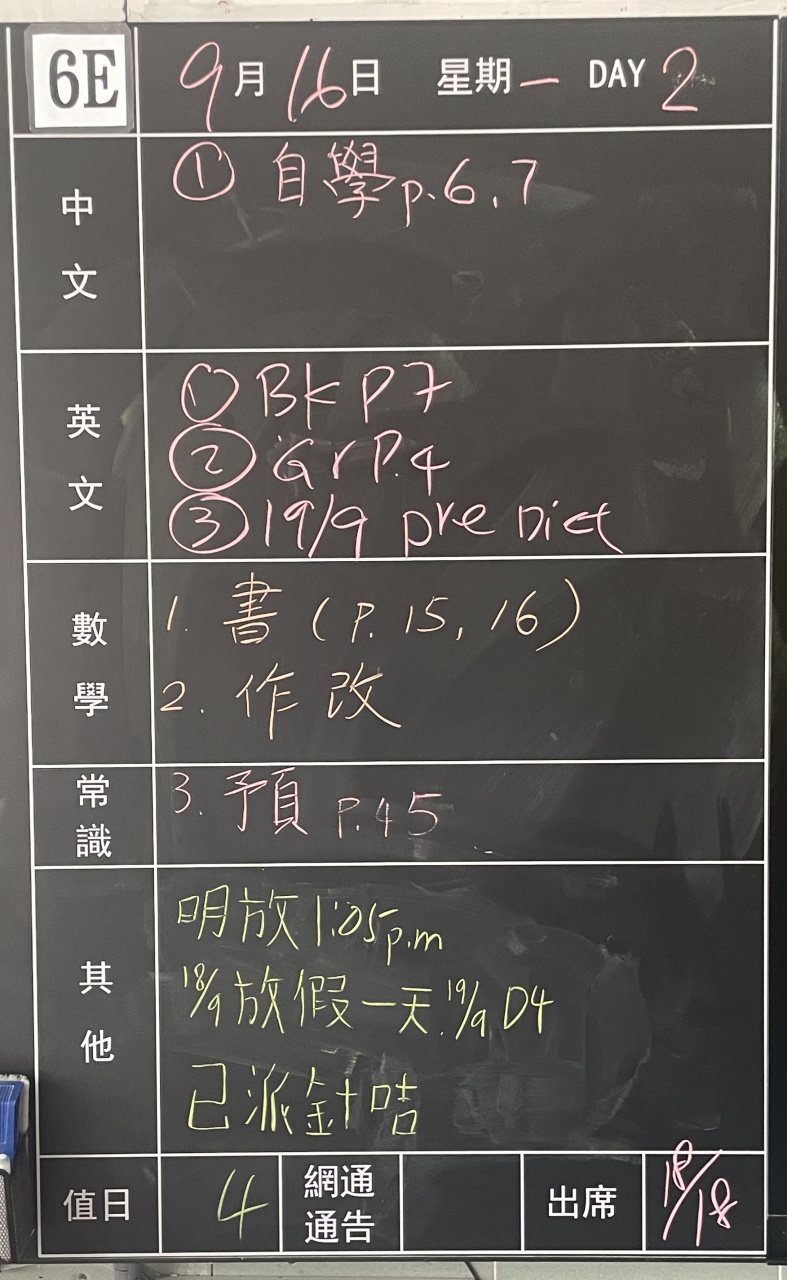 6E 9月16日 星期一 DAY 2
中文
① 自學p.6,7
英文
① BK P7
② Gr P.4
③ 19/9 pre Dict
數學
1. 書(P. 15, 16)
2. 作改
常識
3. 預 P.45
其他
明放1:05p.m
18/9放假一天.19/9 D4
已派針咭
值日 4 網通通告 出席 18/18